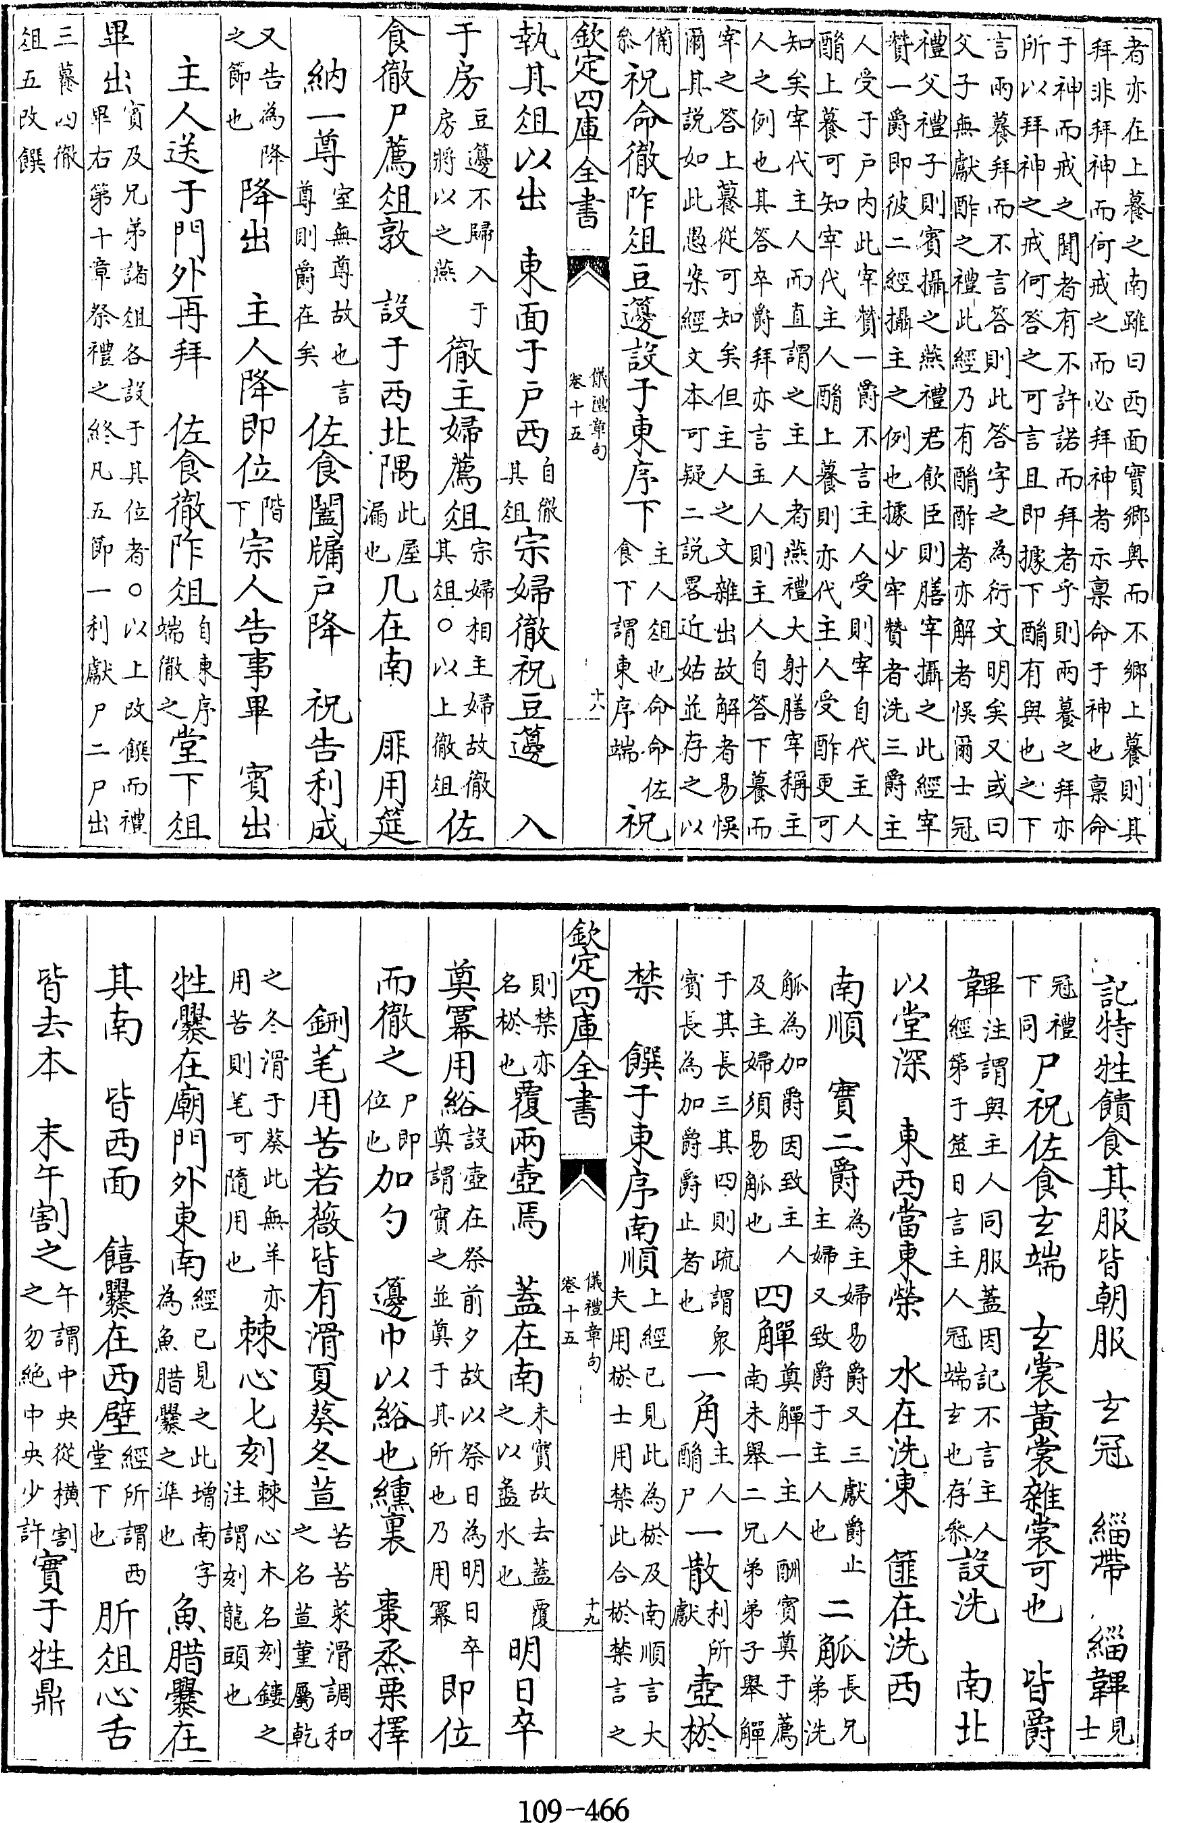 者亦在上䭐之南雖曰西面實鄉奥而不鄉上䭐則其
拜非拜神而何戒之而必拜神者示禀命于神也禀命
于神而戒之聞者有不許諾而拜者乎則兩䭐之拜亦
所以拜神之戒何答之可言且即據下酳有與也之下
言兩䭐拜而不言答則此答字之為衍文明矣又或曰
父子無獻酢之禮此經乃有酳酢者亦解者悞爾士冠
禮父禮子則賓攝之燕禮君飲臣則膳宰攝之此經宰
贊一爵即彼二經攝主之例也據少牢贊者洗三爵主
人受于戶内此宰贊一爵不言主人受則宰自代主人
酳上䭐可知宰代主人酳上䭐則亦代主人受酢更可
知矣宰代主人而直謂之主人者燕禮大射膳宰稱主
人之例也其答卒爵拜亦言主人則主人自答下䭐而
宰之答上䭐從可知矣但主人之文雜出故解者易悞
爾其說如此愚案經文本可疑二說畧近姑並存之以
備叅 祝命徹阼俎豆籩設于東序下主人俎也命命佐食下謂東序端 祝
欽定四庫全書 儀禮章句 卷十五 十八
執其俎以出 東面于戶西自徹其俎宗婦徹祝豆籩 入
于房豆籩不歸入于房將以之燕 徹主婦薦俎宗婦相主婦故徹其俎○以上徹俎佐
食徹尸薦俎敦 設于西北隅此屋漏也几在南 厞用筵
納一尊室無尊故也言尊則爵在矣 佐食闔牖戶降 祝告利成
又告為降之節也降出 主人降即位階下宗人告事畢 賓出
主人送于門外再拜 佐食徹阼俎自東序端徹之堂下俎
畢出賓及兄弟諸俎各設于其位者○以上改饌而禮畢右第十章祭禮之終凡五節一利獻尸二尸出
三䭐四徹俎五改饌
記特牲饋食其服皆朝服 玄冠 緇帶 緇韠見士
冠禮下同 尸祝佐食玄端 玄裳黃裳雜裳可也 皆爵
韠注謂與主人同服蓋因記不言主人經第于筮日言主人冠端玄也存叅設洗 南北
以堂深 東西當東榮 水在洗東 篚在洗西
南順 實二爵為主婦易爵又三獻爵止主婦又致爵于主人也 二觚長兄弟洗
觚為加爵因致主人及主婦須易觚也 四觶奠觶一主人酬賓奠于薦南未舉二兄弟弟子舉觶
于其長三其四則疏謂衆賓長為加爵爵止者也 一角主人酳尸一散利所獻 壺棜
禁 饌于東序南順上經已見此為棜及南順言大夫用棜士用禁此合棜禁言之
欽定四庫全書 儀禮章句 卷十五 十九
則禁亦名棜也覆兩壺焉 蓋在南未實故去蓋覆之以盝水也 明日卒
奠冪用綌設壺在祭前夕故以祭日為明日卒奠謂實之並奠于其所也乃用冪 即位
而徹之尸即位也加勺 籩巾以綌也纁裏 棗烝栗擇
鉶芼用苦若薇皆有滑夏葵冬荁苦苦菜滑調和之名荁堇屬乾
之冬滑于葵此無羊亦用苦則芼可隨用也 棘心匕刻棘心木名刻鏤之注謂刻龍頭也
牲爨在廟門外東南經已見之此增南字為魚腊爨之準也 魚腊爨在
其南 皆西面 饎爨在西壁經所謂西堂下也 肵俎心舌
皆去本 末午割之午謂中央從横割之勿絶中央少許實于牲鼎
109-466